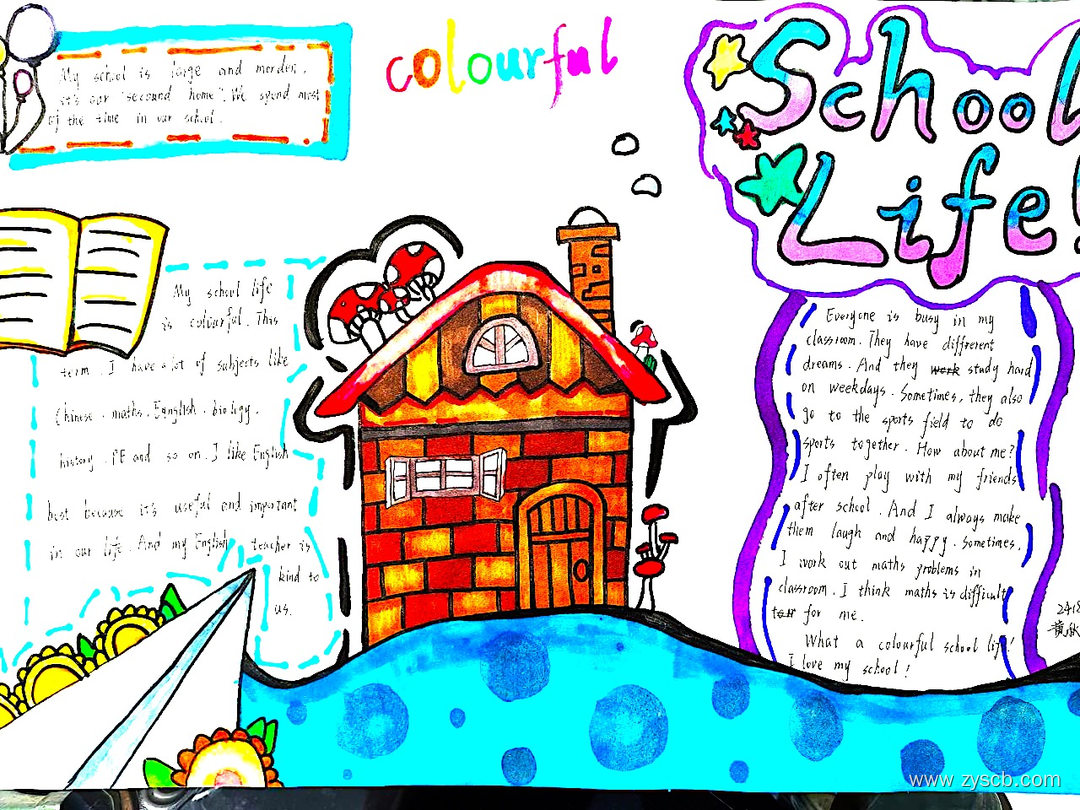 colourful
School
Life!
My school is large and morden.
It's our "secound home". We spend most
of the time in our school.
My school life
is colourful. This
term. I have a lot of subjects like
Chinese. maths. Egnglish. biology.
history. PE and so on. I like English
best because it's useful and important
in our life. And my English teacher is
kind to
us.
Everyone is busy in my
classroom. They have diffrerent
dreams. And they work study hard
on weekdays. Sometimes, they also
go to the sports field to do
sports together. How about me?
I often play with my friends
after school. And I always make
them laugh and happy. Sometimes,
I work out maths problems in
classroom. I think maths is difficult
for me.
What a colourful school life!
I love my school!
www.zyscb.com